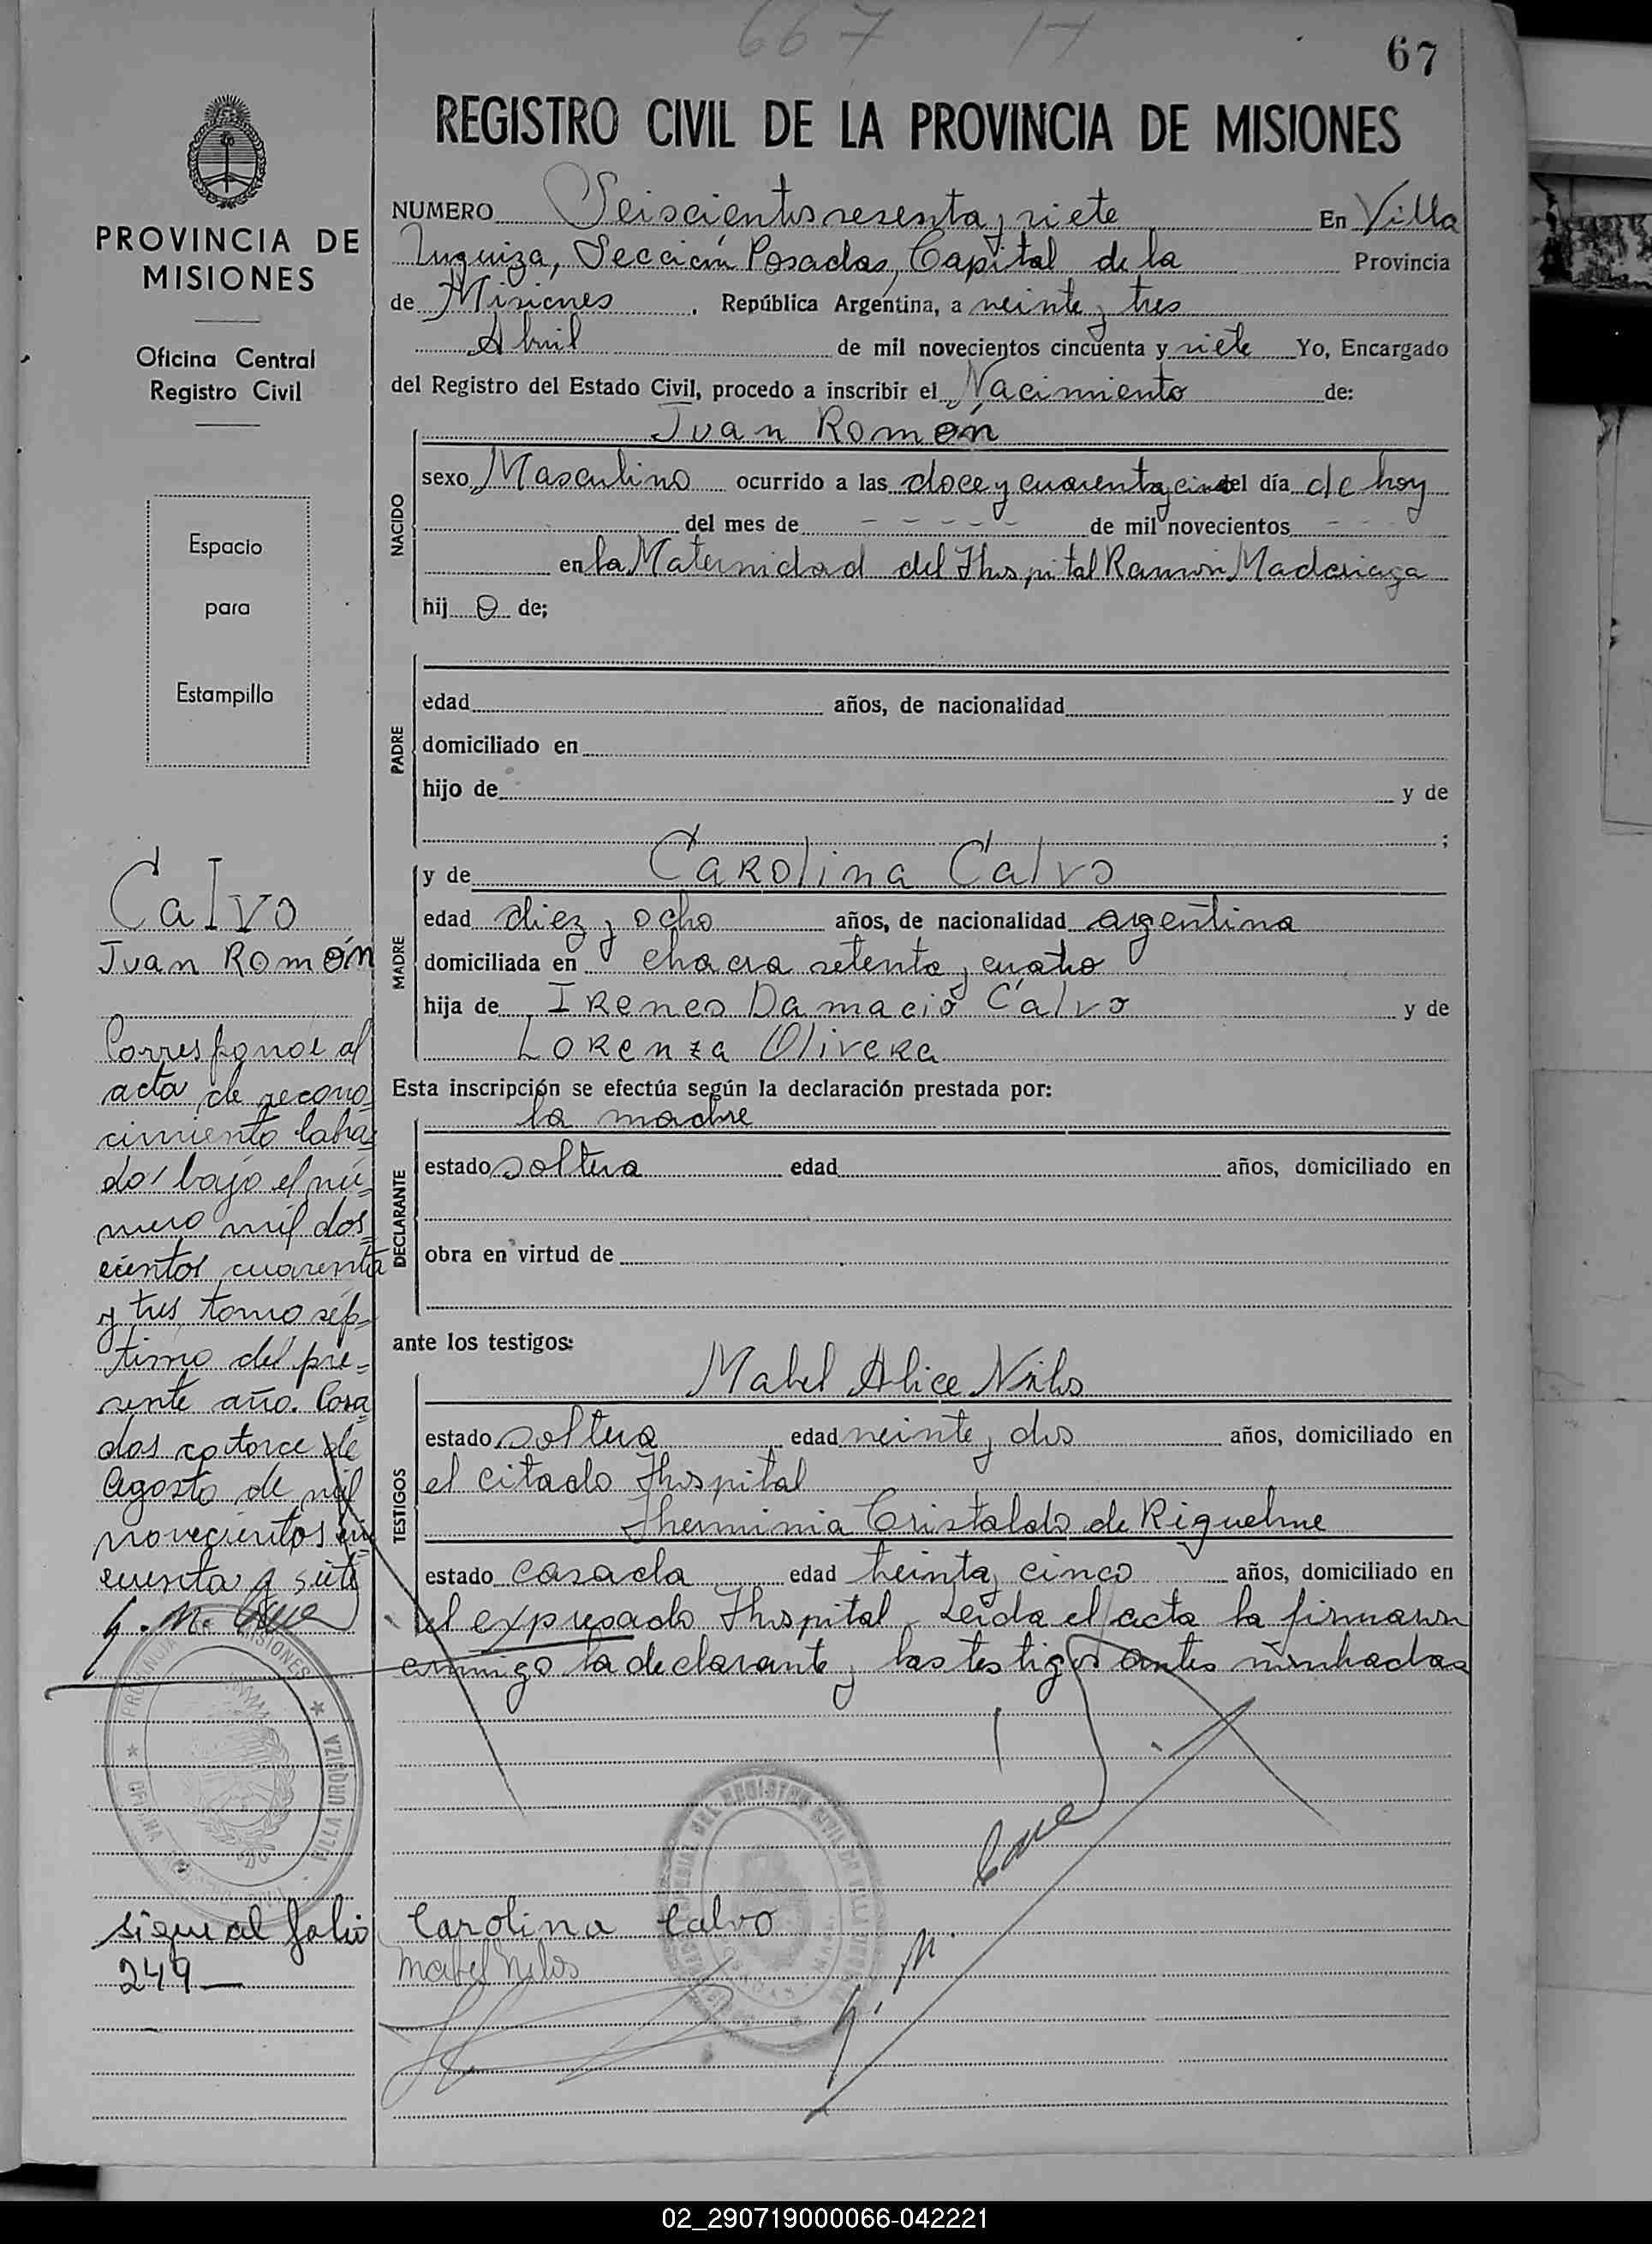 667 17
67
REGISTRO CIVIL DE LA PROVINCIA DE MISIONES
PROVINCIA DE
MISIONES
Oficina Central
Registro Civil
Espacio
para
Estampilla
NUMERO Seiscientos sesenta y siete En Villa
Urquiza, Sección Posadas, Capital de la Provincia
de Misiones, República Argentina, a veinte y tres
Abril de mil novecientos cincuenta y siete Yo, Encargado
del Registro del Estado Civil, procedo a inscribir el Nacimiento de:
NACIDO
Juan Romón
sexo Masculino ocurrido a las doce y cuarenta y cinco del día de hoy
del mes de - - - - - de mil novecientos - - -
en la Maternidad del Hospital Ramón Madariaga
hijo de;
PADRE
edad años, de nacionalidad
domiciliado en
hijo de y de
;
MADRE
y de Carolina Calvo
edad diez y ocho años, de nacionalidad argentina
domiciliada en chacra setenta y cuatro
hija de Ireneo Damacio Calvo y de
Lorenza Olivera
Esta inscripción se efectúa según la declaración prestada por:
DECLARANTE
la madre
estado soltera edad años, domiciliado en
obra en virtud de
ante los testigos:
TESTIGOS
Mabel Alice Niklos
estado soltera edad veinte y dos años, domiciliado en
el citado Hospital
Herminia Cristaldo de Riquelme
estado casada edad treinta y cinco años, domiciliado en
el expresado Hospital. Leída el acta la firmaron
conmigo la declarante y las testigos antes nombradas
Carolina Calvo
Mabel Nilos
Calvo
Juan Romón
Corresponde al
acta de recono
cimiento labra=
do bajo el nú=
mero mil dos=
cientos cuarenta
y tres, tomo sép=
timo del pre=
sente año. Posa
das catorce de
Agosto de mil
novecientos cin
cuenta y siete
PROVINCIA MISIONES
VILLA URQUIZA
OFICINA
sigue al folio
249—
02_290719000066-042221